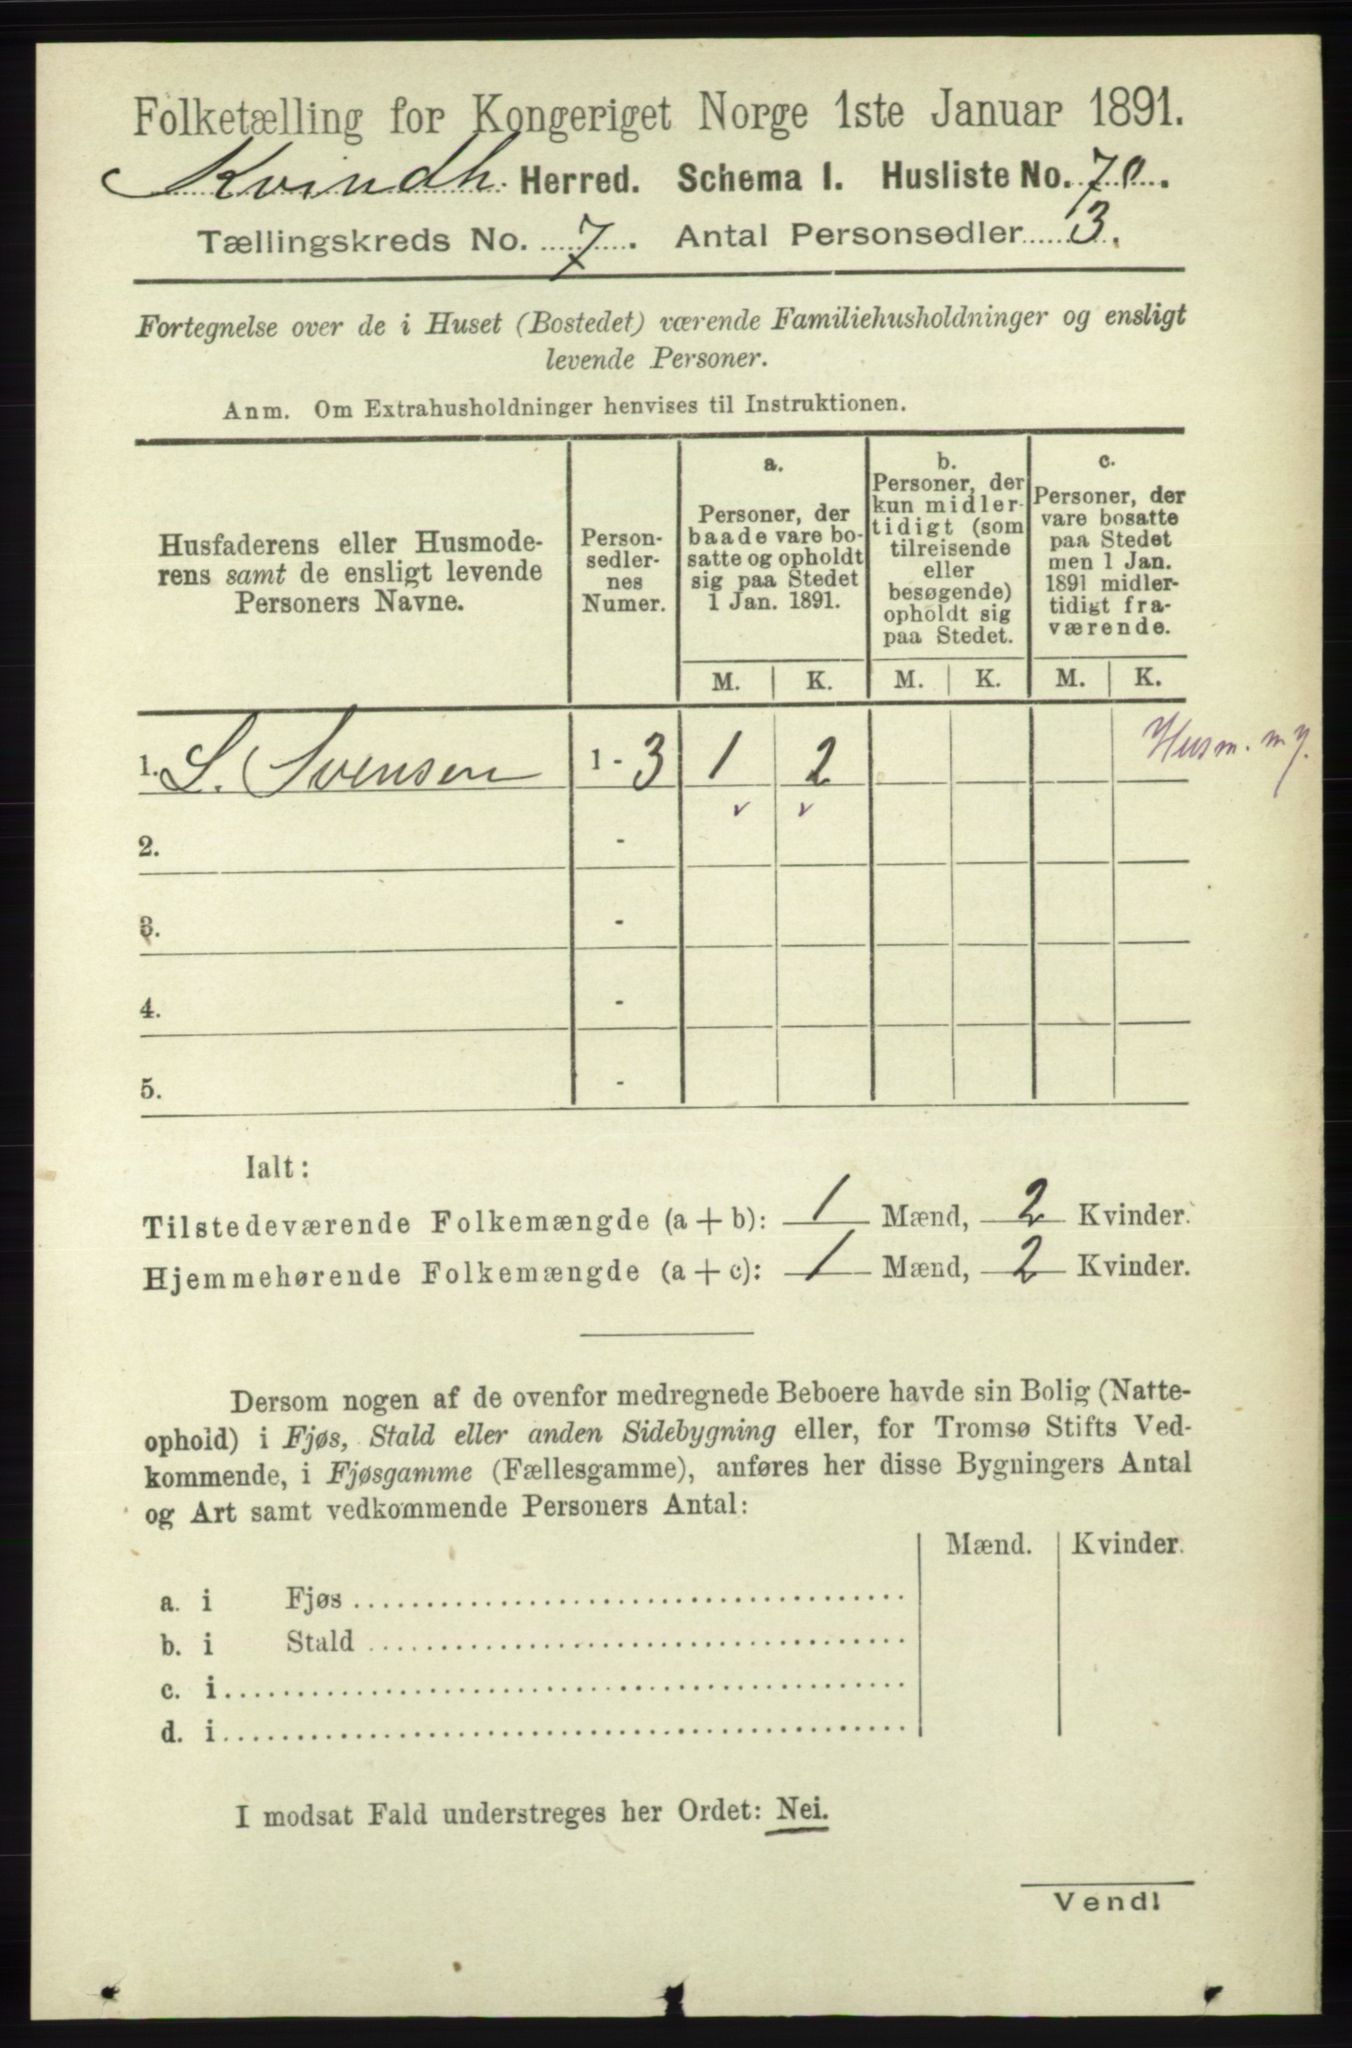 Folketælling for Kongeriget Norge 1ste Januar 1891.
Kvindh. Herred. Schema I. Husliste No. 70.
Tællingskreds No. 7. Antal Personsedler 3.
Fortegnelse over de i Huset (Bostedet) værende Familiehusholdninger og ensligt
levende Personer.
Anm. Om Extrahusholdninger henvises til Instruktionen.
Husfaderens eller Husmode-
rens samt de ensligt levende
Personers Navne.
Person-
sedler-
nes
Numer.
a.
Personer, der
baade vare bo-
satte og opholdt
sig paa Stedet
1 Jan. 1891.
b.
Personer, der
kun midler-
tidigt (som
tilreisende
eller
besøgende)
opholdt sig
paa Stedet.
c.
Personer, der
vare bosatte
paa Stedet
men 1 Jan.
1891 midler-
tidigt fra-
værende.
M. K. M. K. M. K.
1. S. Svensen 1 - 3 1 2 Husm. m j.
2. -
3. -
4. -
5. -
Ialt:
Tilstedeværende Folkemængde (a + b): 1 Mænd, 2 Kvinder.
Hjemmehørende Folkemængde (a + c): 1 Mænd, 2 Kvinder.
Dersom nogen af de ovenfor medregnede Beboere havde sin Bolig (Natte-
ophold) i Fjøs, Stald eller anden Sidebygning eller, for Tromsø Stifts Ved-
kommende, i Fjøsgamme (Fællesgamme), anføres her disse Bygningers Antal
og Art samt vedkommende Personers Antal:
Mænd. Kvinder.
a. i Fjøs
b. i Stald
c. i
d. i
I modsat Fald understreges her Ordet: Nei.
Vend!